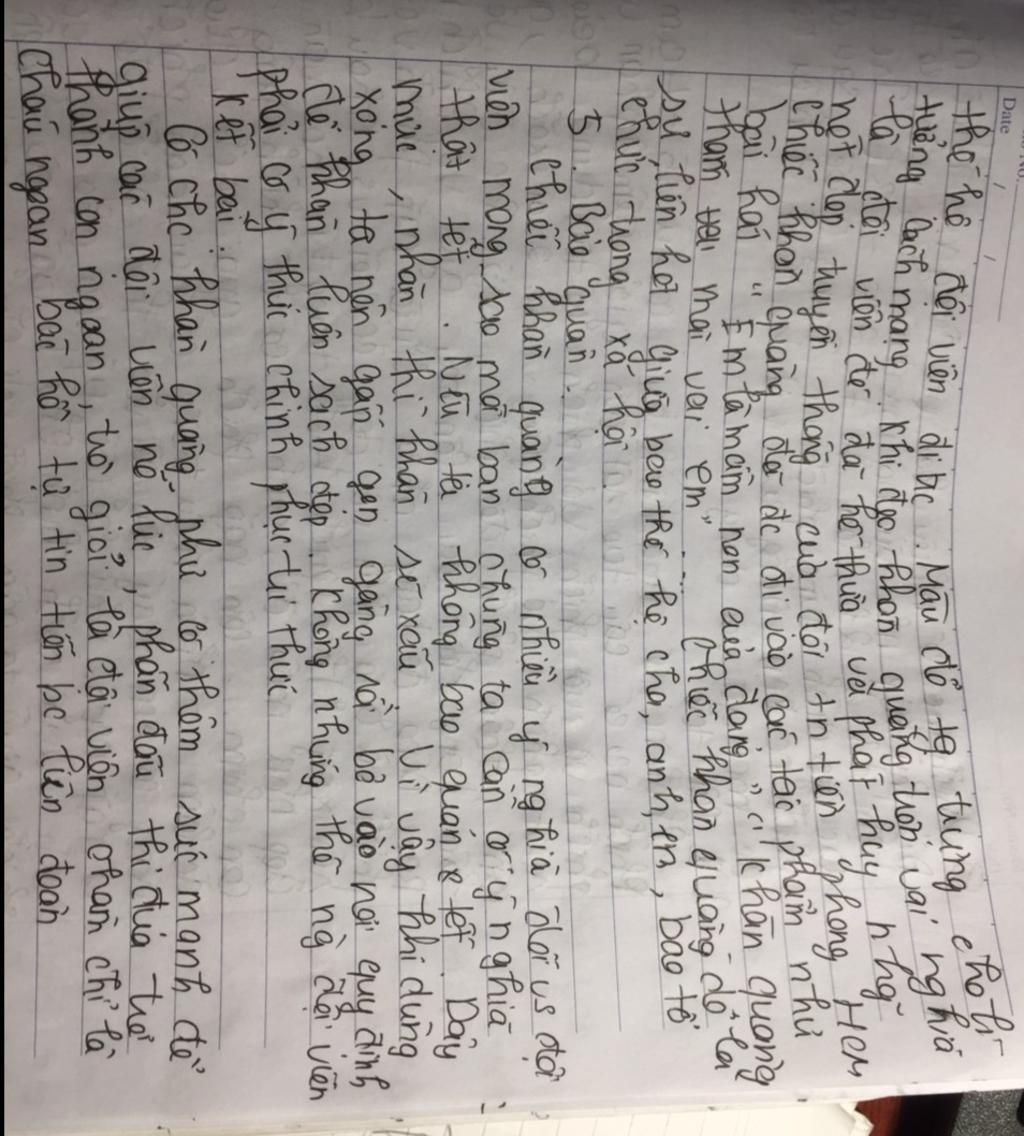 Date
thế hệ đội viên đi bc. Màu đỏ tg trưng cho lí
tưởng cách mạng. khi đeo khăn quàng trên vai nghĩa
là đội viên đó đã kế thừa và phát huy nhg
nét đẹp truyền thống của đội tn tiền phong HCM
chiếc khăn quàng đỏ đc đi vào các tác phẩm như
bài hát " Em là mầm non của đảng", " khăn quàng
thắm trên mãi vai em" ... chiếc khăn quàng đỏ là
sự liên hợp giữa bao thế hệ cha, anh, em, bao tổ
chức trong xã hội
5. Bảo quản.
chiếc khăn quàng có nhiều ý nghĩa đối vs đội
viên mong sao mỗi bạn chúng ta cần có ý nghĩa
thật tốt. Nếu ta không bảo quản tốt. Dây
mực, nhàn thì khăn sẽ xấu. Vì vậy khi dùng
xong ta nên gấp gọn gàng rồi bỏ vào nơi quy định
để khăn luôn sạch đẹp. không những thế ng đội viên
phải có ý thức chinh phục tri thức
kết bài.
Có chiếc khăn quàng như có thêm sức mạnh để
giúp các đội viên nỗ lực, phấn đấu thi đua trở
thành con ngoan, trò giỏi, là đội viên chăm chỉ là
cháu ngoan bác hồ tự tin tiến bc lên đoàn